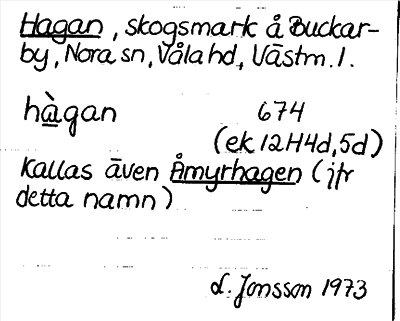 Hagan, skogsmark å Buckar-
by, Nora sn, Våla hd, Västm. l.
hàgan 674
(ek 12H4d,5d)
Kallas även Åmyrhagen (jfr
detta namn)
L. Jonsson 1973